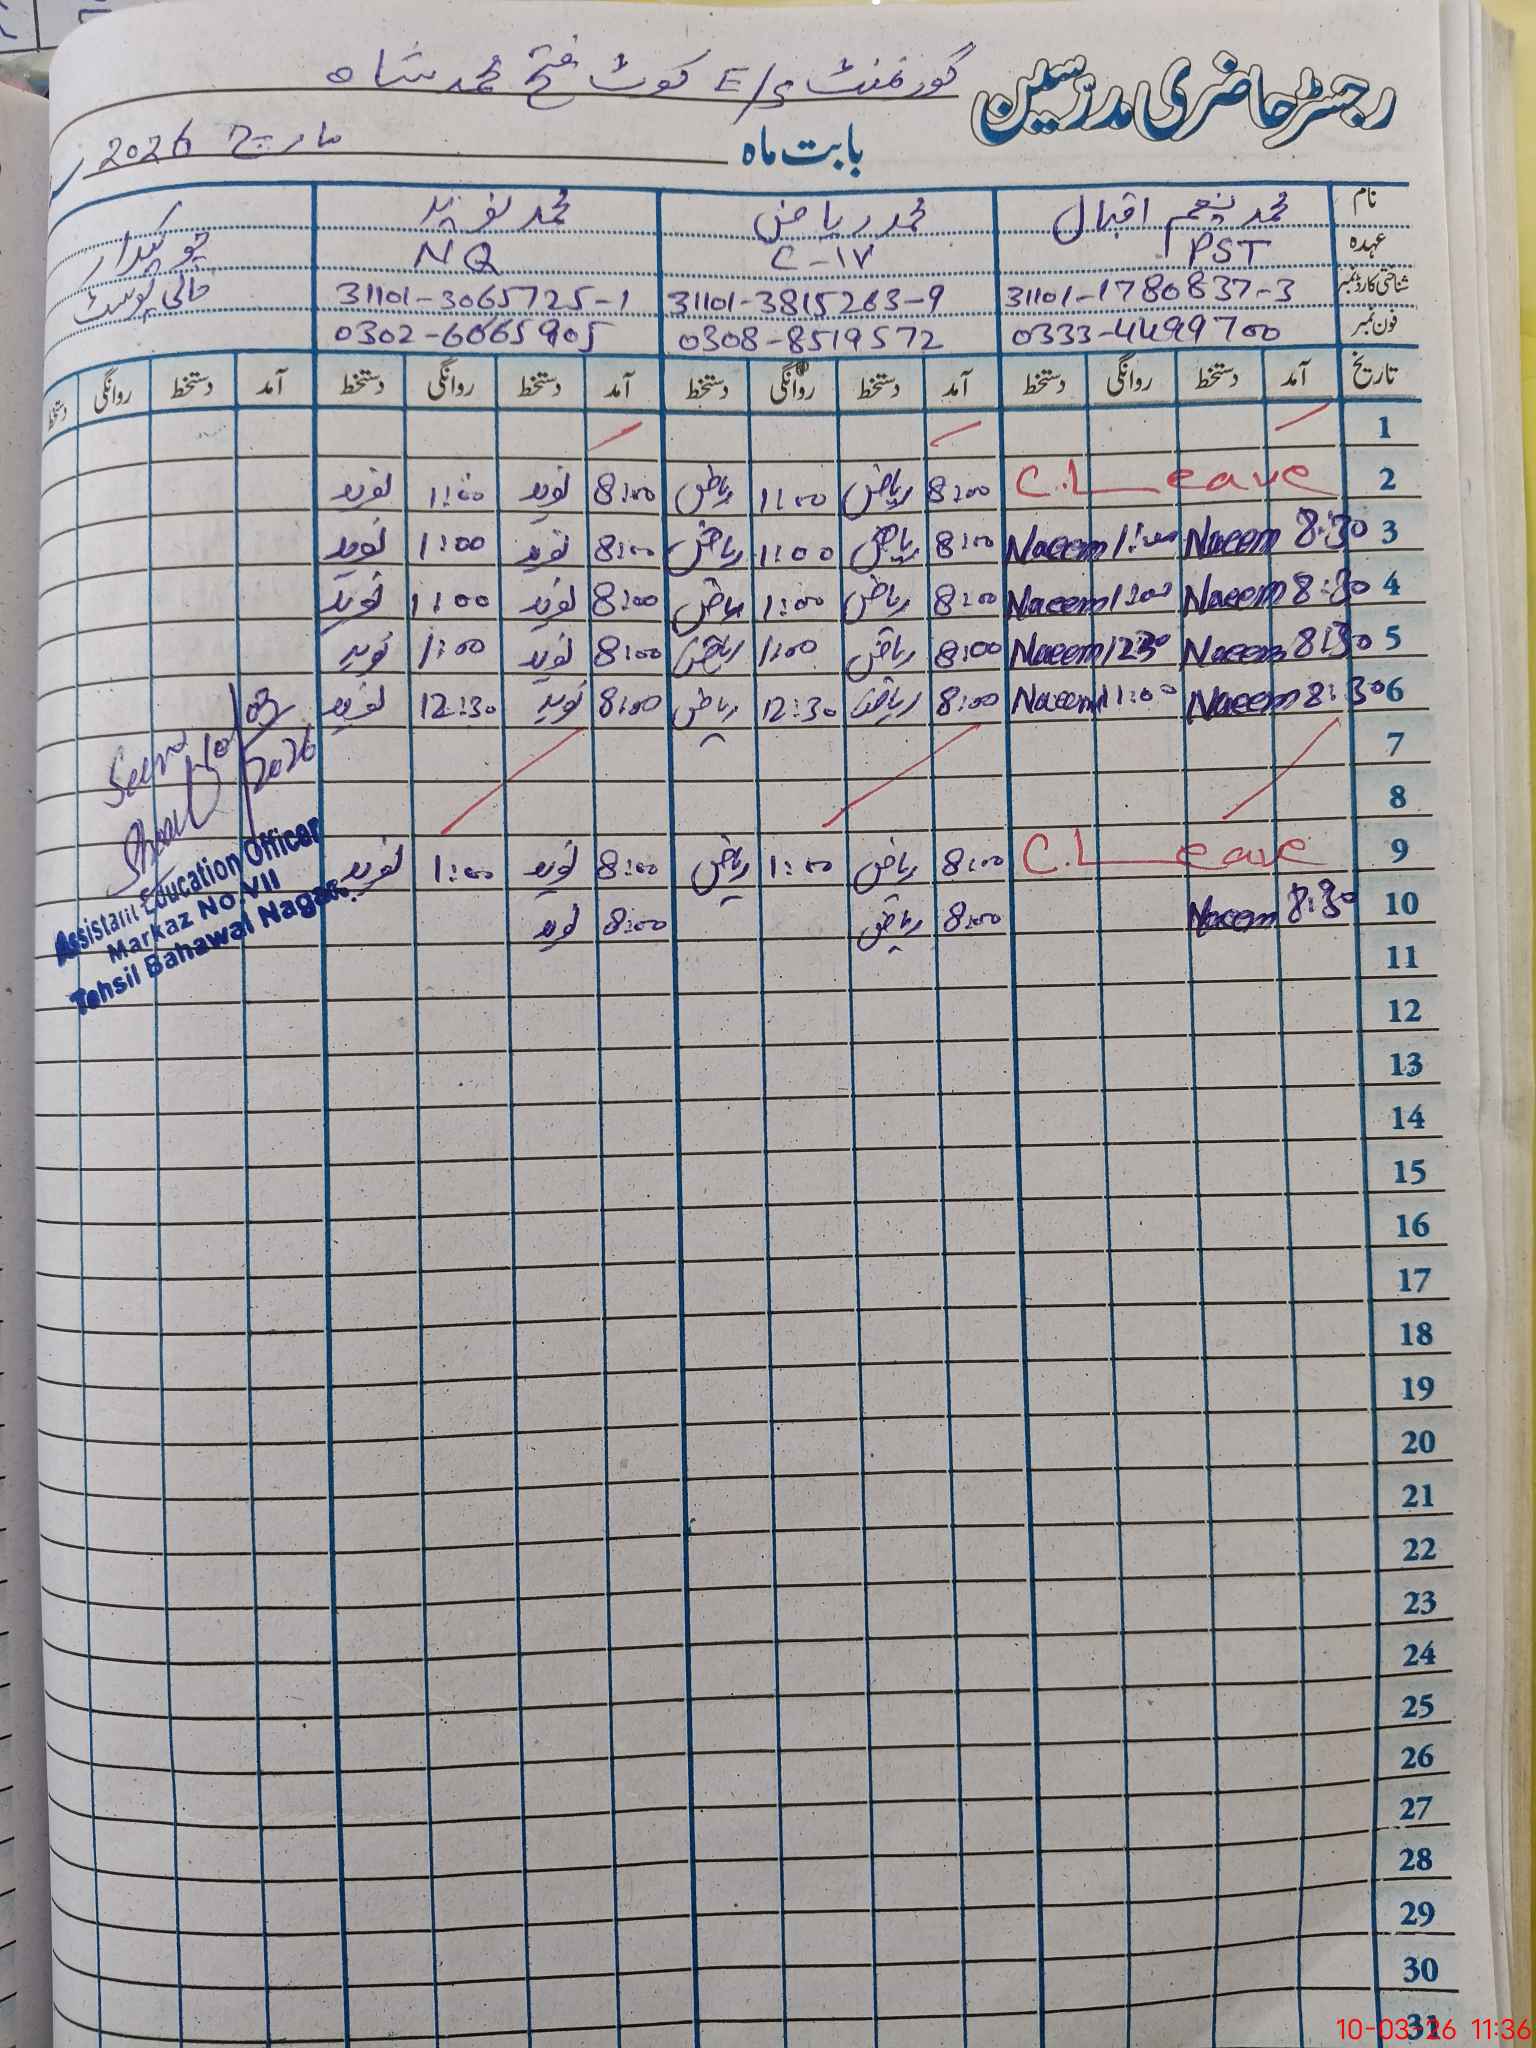 رجسٹر حاضری مدرسین گورنمنٹ E/S کوٹ فتح محمد شاہ
بابت ماہ مارچ 2026
نام محمد نعیم اقبال محمد ریاض محمد نوید چوکیدار
عہدہ PST C-IV NQ خالی پوسٹ
شناختی کارڈ نمبر 31101-1780837-3 31101-3815263-9 31101-3065725-1
فون نمبر 0333-4499700 0308-8519572 0302-6065905
تاریخ آمد دستخط روانگی دستخط آمد دستخط روانگی دستخط آمد دستخط روانگی دستخط آمد دستخط روانگی دستخط
1
2 C.Leave 8:00 ریاض 11:00 ریاض 8:00 نوید 1:00 نوید
3 8:30 Naeem 1:00 Naeem 8:00 ریاض 1:00 ریاض 8:00 نوید 1:00 نوید
4 8:30 Naeem 1:00 Naeem 8:00 ریاض 1:00 ریاض 8:00 نوید 1:00 نوید
5 8:30 Naeem 12:30 Naeem 8:00 ریاض 1:00 ریاض 8:00 نوید 1:00 نوید
6 8:30 Naeem 11:00 Naeem 8:00 ریاض 12:30 ریاض 8:00 نوید 12:30 نوید
7
8
9 C.Leave 8:00 ریاض 1:00 ریاض 8:00 نوید 1:00 نوید
10 8:30 Naeem 8:00 ریاض 8:00 نوید
Seen
10/03/2026
Assistant Education Officer
Markaz No.VII
Tehsil Bahawal Nagar.
11
12
13
14
15
16
17
18
19
20
21
22
23
24
25
26
27
28
29
30
31
10-03-26 11:36